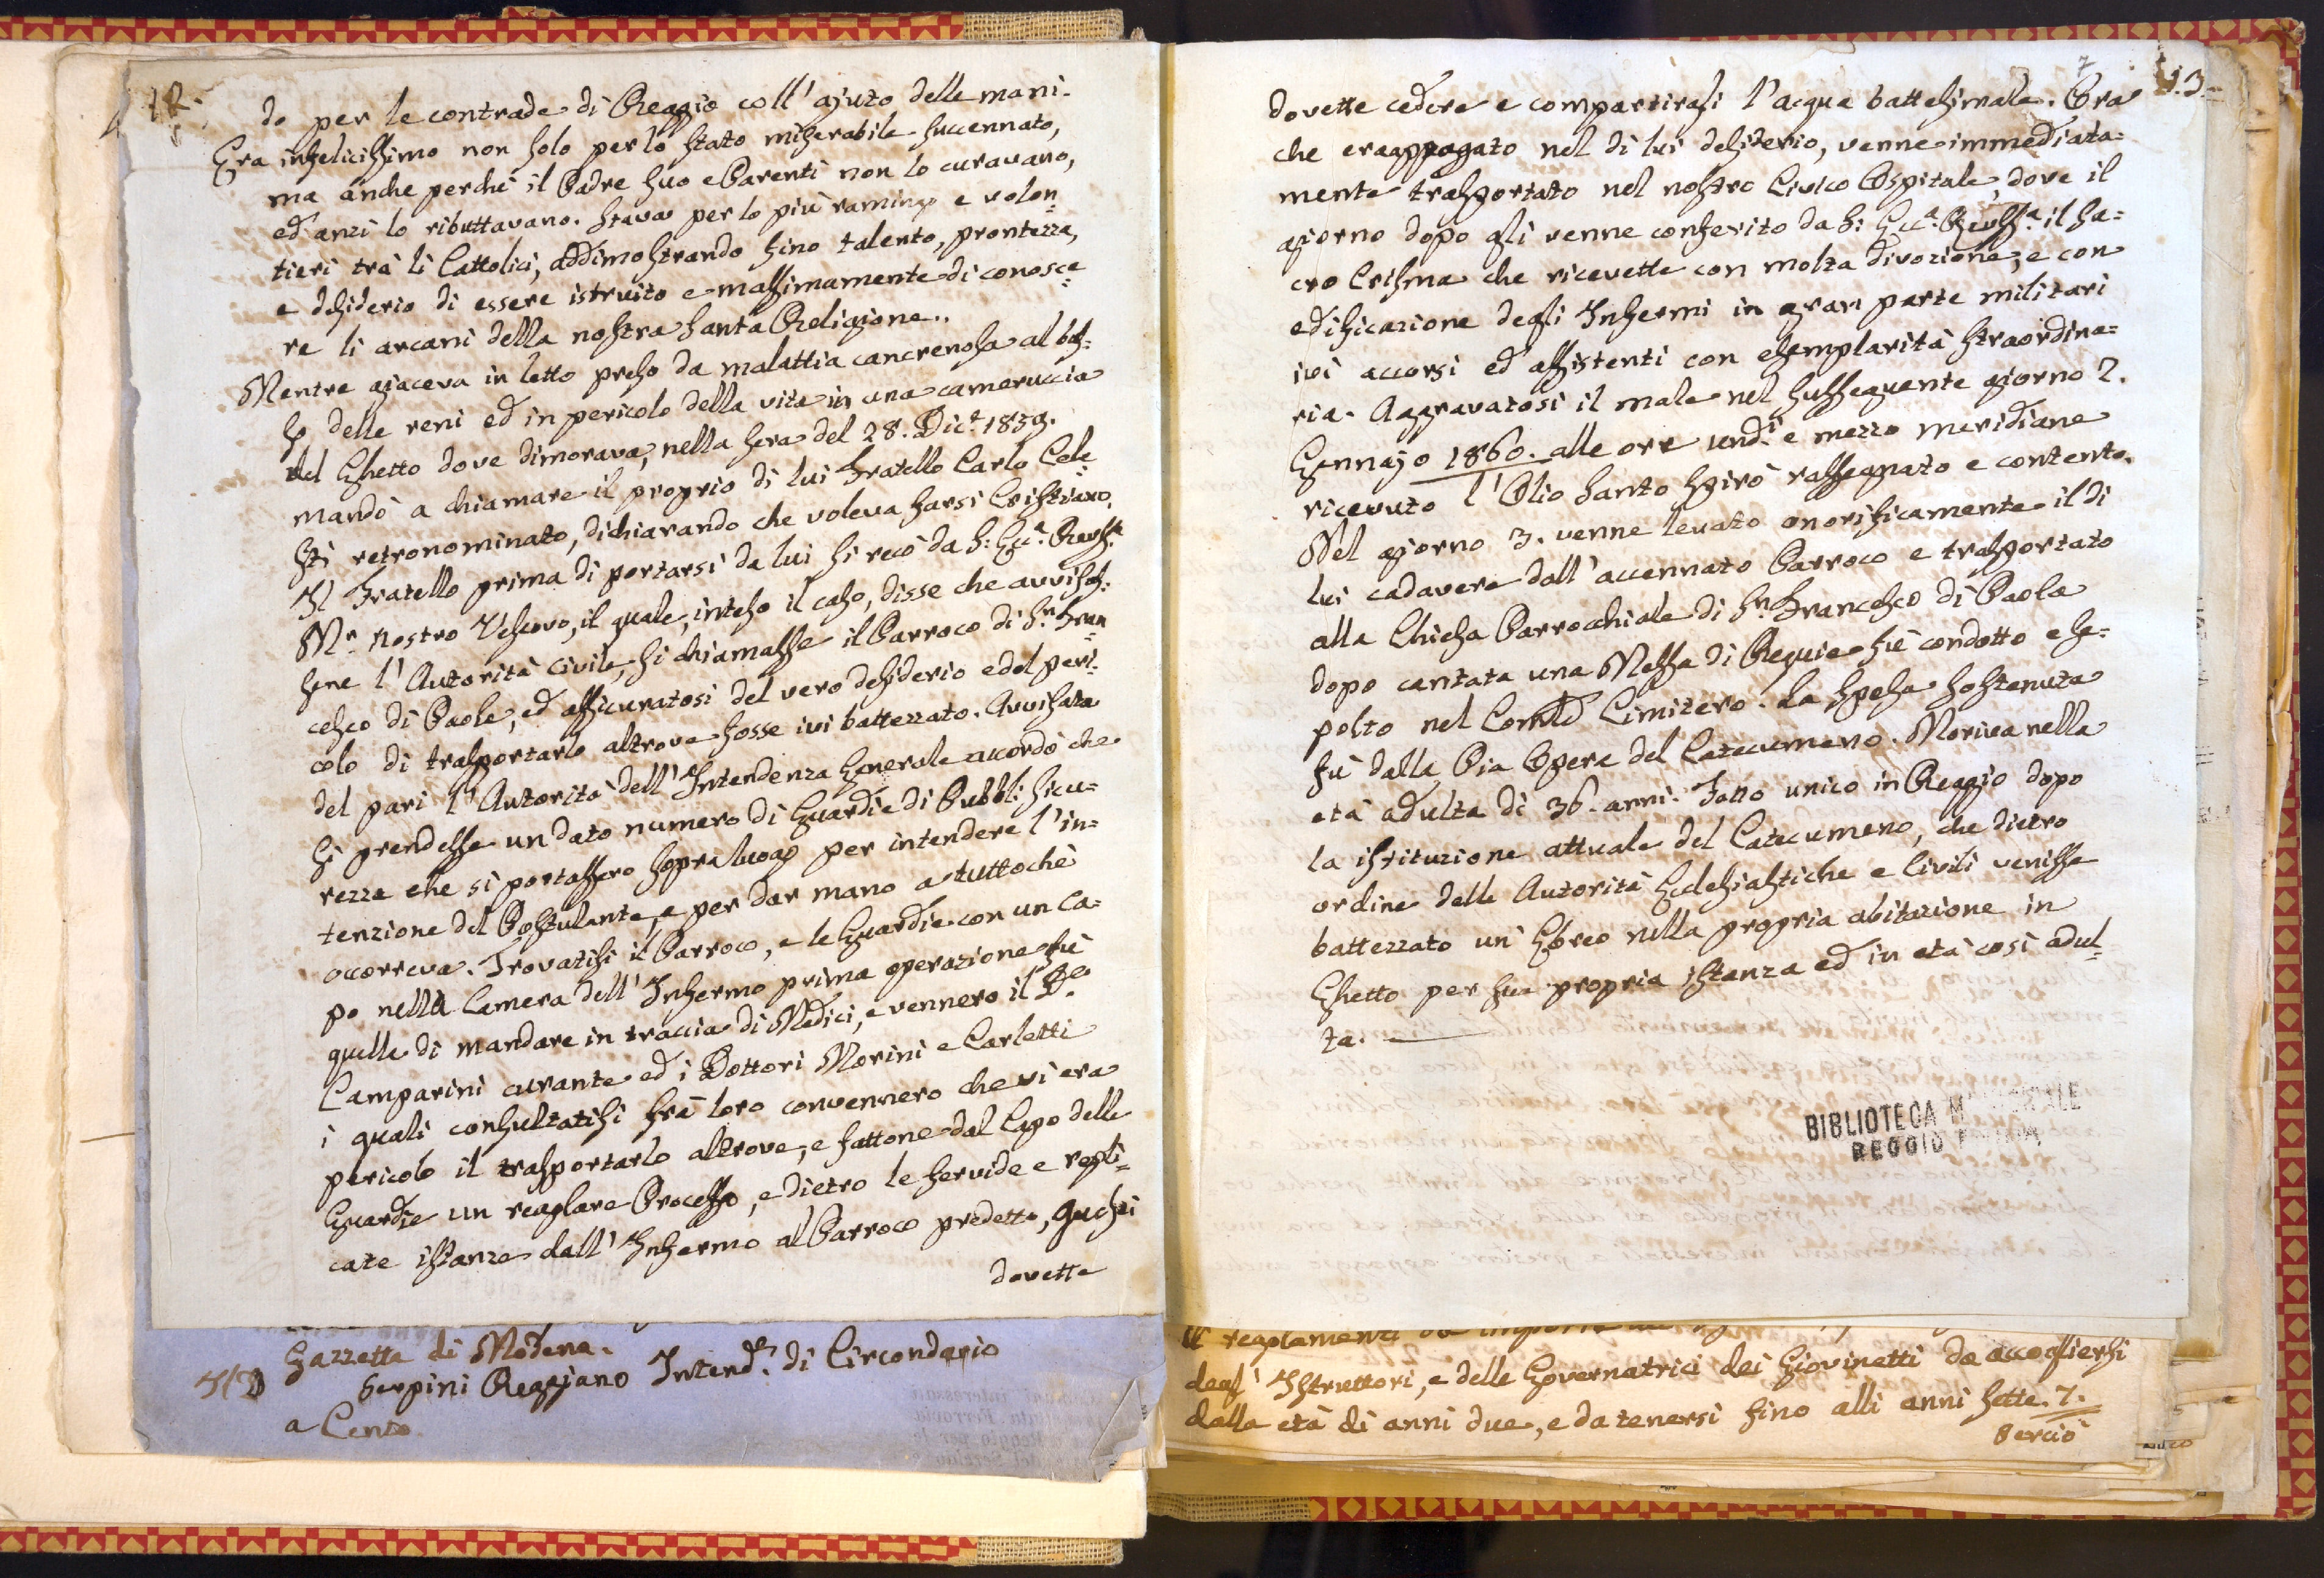 12.
do per le contrade di Reggio coll'ajuto delle mani.
Era infelicissimo non solo per lo stato miserabile succennato,
ma anche perchè il Padre suo e Parenti non lo curavano,
ed anzi lo ributtavano. Stava per lo più ramingo e volon=
tieri trà li Cattolici, addimostrando fino talento, prontezza,
e desiderio di essere istruito e massimamente di conosce=
re li arcani della nostra Santa Religione.
Mentre giaceva in letto preso da malattia cancrenosa al bas=
so delle reni ed in pericolo della vita in una cameruccia
del Ghetto dove dimorava, nella sera del 28. Dic.e 1859.
mandò a chiamare il proprio di lui fratello Carlo Cele
sti retronominato, dichiarando che voleva farsi Cristiano.
Il Fratello prima di portarsi da lui si recò da S: Ecc.a Revss.a
Mr. nostro Vescovo, il quale, inteso il caso, disse che avvisas.
sene l'Autorità civile, si chiamasse il Parroco di S.n Fran=
cesco di Paola, ed assicuratosi del vero desiderio e del peri=
colo di trasportarlo altrove fosse ivi battezzato. Avvisata
del pari l'Autorità dell'Intendenza Generale accordò che
si prendesse un dato numero di Guardie di Pubbl: Sicu=
rezza che si portassero sopra luogo per intendere l'in=
tenzione del Postulante, e per dar mano a tuttochè
occorreva. Trovatisi il Parroco, e le Guardie con un Ca=
po nella Camera dell'Infermo prima operazione fù
quella di mandare in traccia di Medici, e vennero il D.r
Camparini curante ed i Dottori Morini e Carletti
i quali consultatisi frà loro convennero che vi era
pericolo il trasportarlo altrove; e fattone dal Capo delle
Guardie un regolare Processo, e dietro le fervide e repli=
cate istanze dall'Infermo al Parroco predetto, questi
dovette
Gazzetta di Modena.
Serpini Reggiano Intend.e di Circondario
a Cento
7
13.
dovette cedere e compartirgli l'acqua battesimale. Ora
che era appagato nel di lui desiderio, venne immediata=
mente trasportato nel nostro Civico Ospitale, dove il
giorno dopo gli venne conferito da S: Ecc.a Revss.a il Sa=
cro Crisma che ricevette con molta divozione, e con
edificazione degli Infermi in gran parte militari
ivi accorsi ed assistenti con esemplarità straordina=
ria. Aggravatosi il male nel susseguente giorno 2.
Gennajo 1860. alle ore und.i e mezzo meridiane
ricevuto l'Olio Santo spirò rassegnato e contento.
Nel giorno 3. venne levato onorificamente il di
lui cadavere dall'accennato Parroco e trasportato
alla Chiesa Parrocchiale di S.n Francesco di Paola
dopo cantata una Messa di Requie fù condotto e se=
polto nel Cimitero. La spesa sostenuta
fù dalla Pia Opera del Catecumeno. Moriva nella
età adulta di 36. anni. Fatto unico in Reggio dopo
la istituzione attuale del Catecumeno, che dietro
ordine delle Autorità Ecclesiastiche e Civili venisse
battezzato un Ebreo nella propria abitazione in
Ghetto per sua propria istanza ed in età così adul=
ta.
BIBLIOTECA
REGGIO
degl'Istruttori, e delle Governatrici dei Giovinetti da accogliersi
dalla età di anni due, e da tenersi fino alli anni sette. 7.
Perciò